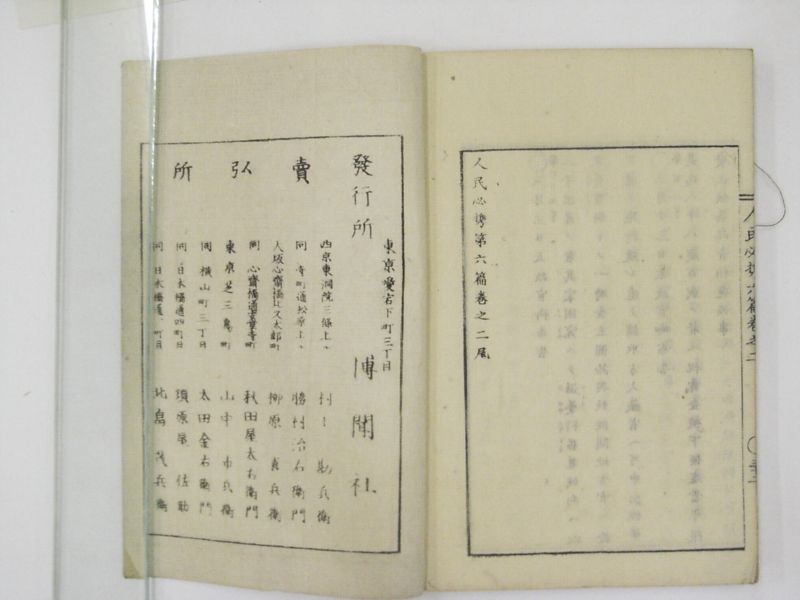 人民必携第六篇巻之二尾
人民必携六篇巻之二
發行所
東亰愛宕下町三丁目
博聞社
賣弘所
西亰東洞院三條上ル
村上勘兵衞
同 寺町通松原上ル
勝村治右衞門
大坂心齋橋北久太郎町
柳原喜兵衞
同 心齋橋通安堂寺町
秋田屋太右衞門
東亰芝三島町
山中市兵衞
同 横山町三丁目
太田金右衞門
同 日本橋通四町目
須原屋佐助
同 日本橋通一町目
北畠茂兵衞